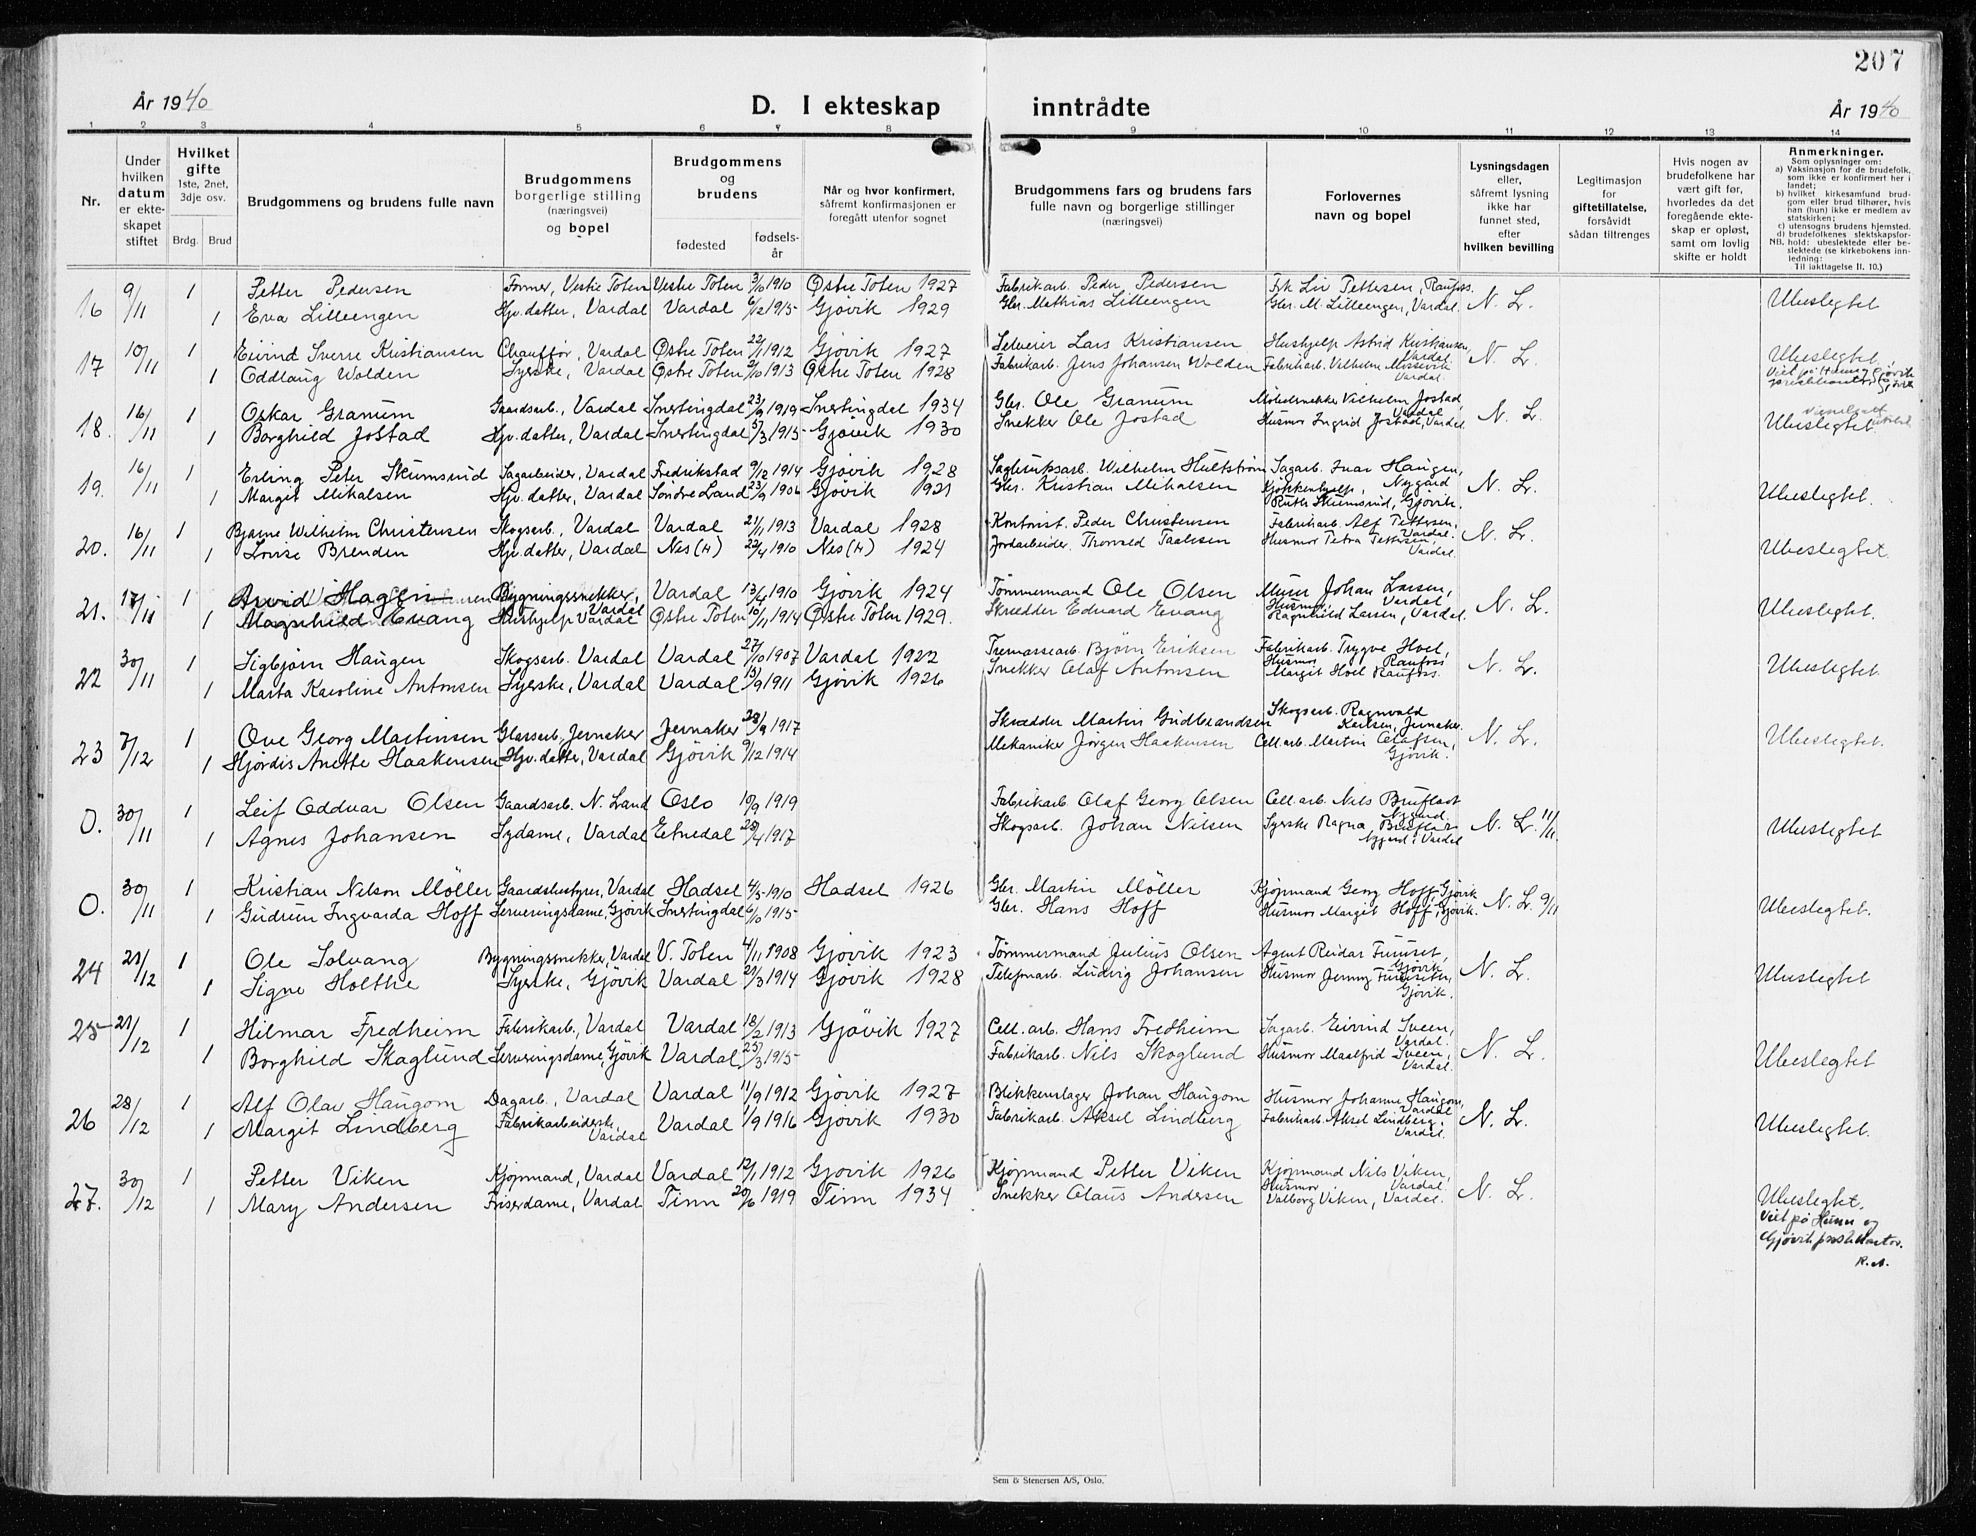 207
År 1940
D. I ekteskap inntrådte
År 1940
1 2 3 4 5 6 7 8 9 10 11 12 13 14
Nr.
Under hvilken datum er ekteskapet stiftet
Hvilket gifte 1ste, 2net, 3dje osv.
Brdg. Brud
Brudgommens og brudens fulle navn
Brudgommens borgerlige stilling (næringsvei) og bopel
Brudgommens og brudens
fødested
fødselsår
Når og hvor konfirmert, såfremt konfirmasjonen er foregått utenfor sognet
Brudgommens fars og brudens fars fulle navn og borgerlige stillinger (næringsvei)
Forlovernes navn og bopel
Lysningsdagen eller, såfremt lysning ikke har funnet sted, efter hvilken bevilling
Legitimasjon for giftetillatelse, forsåvidt sådan tiltrenges
Hvis nogen av brudefolkene har vært gift før, hvorledes da det foregående ekteskap er opløst, samt om lovlig skifte er holdt
Anmerkninger.
Som oplysninger om:
a) Vaksinasjon for de brudefolk, som ikke er konfirmert her i landet;
b) hvilket kirkesamfund brudgom eller brud tilhører, hvis han (hun) ikke er medlem av statskirken;
c) utensogns brudens hjemsted.
d) brudefolkenes slektskapsforhold: ubeslektede eller beslektede (se kirkebokens innledning:
NB. Til iakttagelse II. 10.)
16 9/11 1 Petter Pedersen Former, Vestre Toten Vestre Toten 3/10 1910 Østre Toten 1927 Fabrikarb. Peder Pedersen Frk Liv Pettersen, Raufoss N. L. Ubeslegtet
1 Eva Lilleengen Hjv. datter, Vardal Vardal 6/12 1915 Gjøvik 1929 Gbr. Mathias Lilleengen Gbr. M. Lilleengen, Vardal.
17 10/11 1 Eivind Sverre Kristiansen Chauffør, Vardal Østre Toten 22/1 1912 Gjøvik 1927 Selveier Lars Kristiansen Hushjelp Astrid Kristiansen, Vardal. N. L. Ubeslegtet.
1 Oddlaug Wolden Syerske, Vardal Østre Toten 1913 Østre Toten 1928 Fabrikarb. Jens Johansen Wolden Fabrikarb. Vilhelm Vardal.
18. 16/11 1 Oskar Granum Gaardsarb., Vardal Snertingdal 23/9 1919 Snertingdal 1934 Gbr. Ole Granum Møbelsnekker Vilhelm Jostad, Vardal N. L. Ubeslegtet
1 Borghild Jostad Hjv. datter, Vardal Snertingdal 5/3 1915 Gjøvik 1930 Snekker Ole Jostad Husmor Ingrid Jostad, Vardal
19. 16/11 1 Erling Peter Skumsrud Sagarbeider, Vardal Fredrikstad 9/12 1914 Gjøvik 1928 Sagbruksarb. Wilhelm Hultstrøm Sagarb. Ivar Haugen, Nygard N. L. Ubeslegtet.
1 Margit Mikalsen Hjv. datter, Vardal Søndre Land 23/9 1906 Gjøvik 1921 Gbr. Kristian Mikalsen Kjøkkenhjelp, Ruth Skumsrud, Gjøvik.
20. 16/11 1 Bjarne Wilhelm Christensen Skogsarb., Vardal Vardal 21/1 1913 Vardal 1928 Kontorist. Peder Christensen Fabrikarb. Alf Pettersen, Vardal. N. L. Ubeslegtet.
1 Lovise Brenden Hjv. datter, Vardal Nes (H) 22/4 1910 Nes (H) 1924 Jordarbeider. Thorvald Taalesen Husmor Petra Pettersen, Vardal
21. 17/11 1 Arvid Hagen Bygningssnekker, Vardal Vardal 13/6 1910 Gjøvik 1924 Tømmermand Ole Olsen Murer Johan Larsen, Vardal N. L. Ubeslegtet.
1 Magnhild Evang Hushjelp Vardal Østre Toten 10/11 1914 Østre Toten 1929. Skrædder Edvard Evang Husmor, Ragnhild Larsen, Vardal.
22 30/11 1 Sigbjørn Haugen Skogsarb. Vardal Vardal 27/10 1907 Vardal 1922 Tremassearb. Bjørn Eriksen Fabrikarb. Trygve Hoel, Raufoss N. L. Ubeslegtet.
1 Marta Karoline Antonsen Syerske, Vardal Vardal 13/9 1911 Gjøvik 1926 Snekker Olaf Antonsen Husmor Margit Hoel Raufoss.
23 7/12 1 Ove Georg Martinsen Glassarb, Jevnaker Jevnaker 28/9 1917 Skrædder Martin Gudbrandsen Skogsarb. Ragnvald Karlsen, Jevnaker. N. L. Ubeslegtet.
1 Hjørdis Anette Haakensen Hjv. datter, Vardal Gjøvik 9/12 1914 Mekaniker Jørgen Haakensen Cell. arb. Martin Olafsen, Gjøvik.
0. 30/11 1 Leif Oddvar Olsen Gaardsarb. N. Land Oslo 19/9 1919 Fabrikarb. Olaf Georg Olsen Cell. arb. Nils Bruflat Nygard. N. L. 11/11. Ubeslegtet
1 Agnes Johansen Sydame, Vardal Etnedal 28/4 1917 Skogsarb. Johan Nilsen Syerske Ragna Bruflat Nygard i Vardal
0. 30/11 1 Kristian Nelson Möller Gaardsbestyrer, Vardal Hadsel 4/5 1910 Hadsel 1926 Gbr. Martin Möller Kjøpmand Georg Hoff, Gjøvik N. L. 9/11 Ubeslegtet.
1 Gudrun Ingvarda Hoff Serveringsdame, Gjøvik Snertingdal 6/10 1915 Gbr. Hans Hoff Husmor Margit Hoff, Gjøvik.
24 21/12 1 Ole Solvang Bygningssnekker, Vardal V. Toten 4/11 1908 Gjøvik 1923 Tømmermand Julius Olsen Agent Reidar Furuset, Gjøvik N. L. Ubeslegtet
1 Signe Holthe Syerske, Gjøvik Vardal 21/3 1914 Gjøvik 1928 Telefonarb. Ludvig Johansen Husmor Jenny Furuseter, Gjøvik.
25 21/12 1 Hilmar Fredheim Fabrikarb., Vardal Vardal 18/2 1913 Gjøvik 1927 Cell. arb. Hans Fredheim Sagarb. Eivind Sveen, Vardal. N. L. Ubeslegtet
1 Borghild Skaglund Serveringsdame, Gjøvik Vardal 25/3 1915 Fabrikarb. Nils Skoglund Husmor Maalfrid Sveen, Vardal.
26 28/12 1 Alf Olav Haugom Dagarb., Vardal Vardal 11/9 1912 Gjøvik 1927 Blikkenslager Johan Haugom Husmor Johanne Haugom, Vardal N. L. Ubeslegtet.
1 Margit Lindberg Fabrikarbeiderske, Vardal Vardal 1/9 1916 Gjøvik 1930 Fabrikarb. Aksel Lindberg Fabrikarb. Aksel Lindberg. Vardal.
27. 30/12 1 Petter Viken Kjøpmand, Vardal Vardal 12/1 1912 Gjøvik 1926 Kjøpmand Petter Viken Kjøpmand Nils Viken, Vardal. N. L. Ubeslegtet.
1 Mary Andersen Friserdame, Vardal Tinn 20/6 1919 Tinn 1934 Snekker Olaus Andersen Husmor Valborg Viken, Vardal.
Viet på Hunn og
Gjøvik prestekontor.
R. A.
Sem & Stenersen A/S, Oslo.